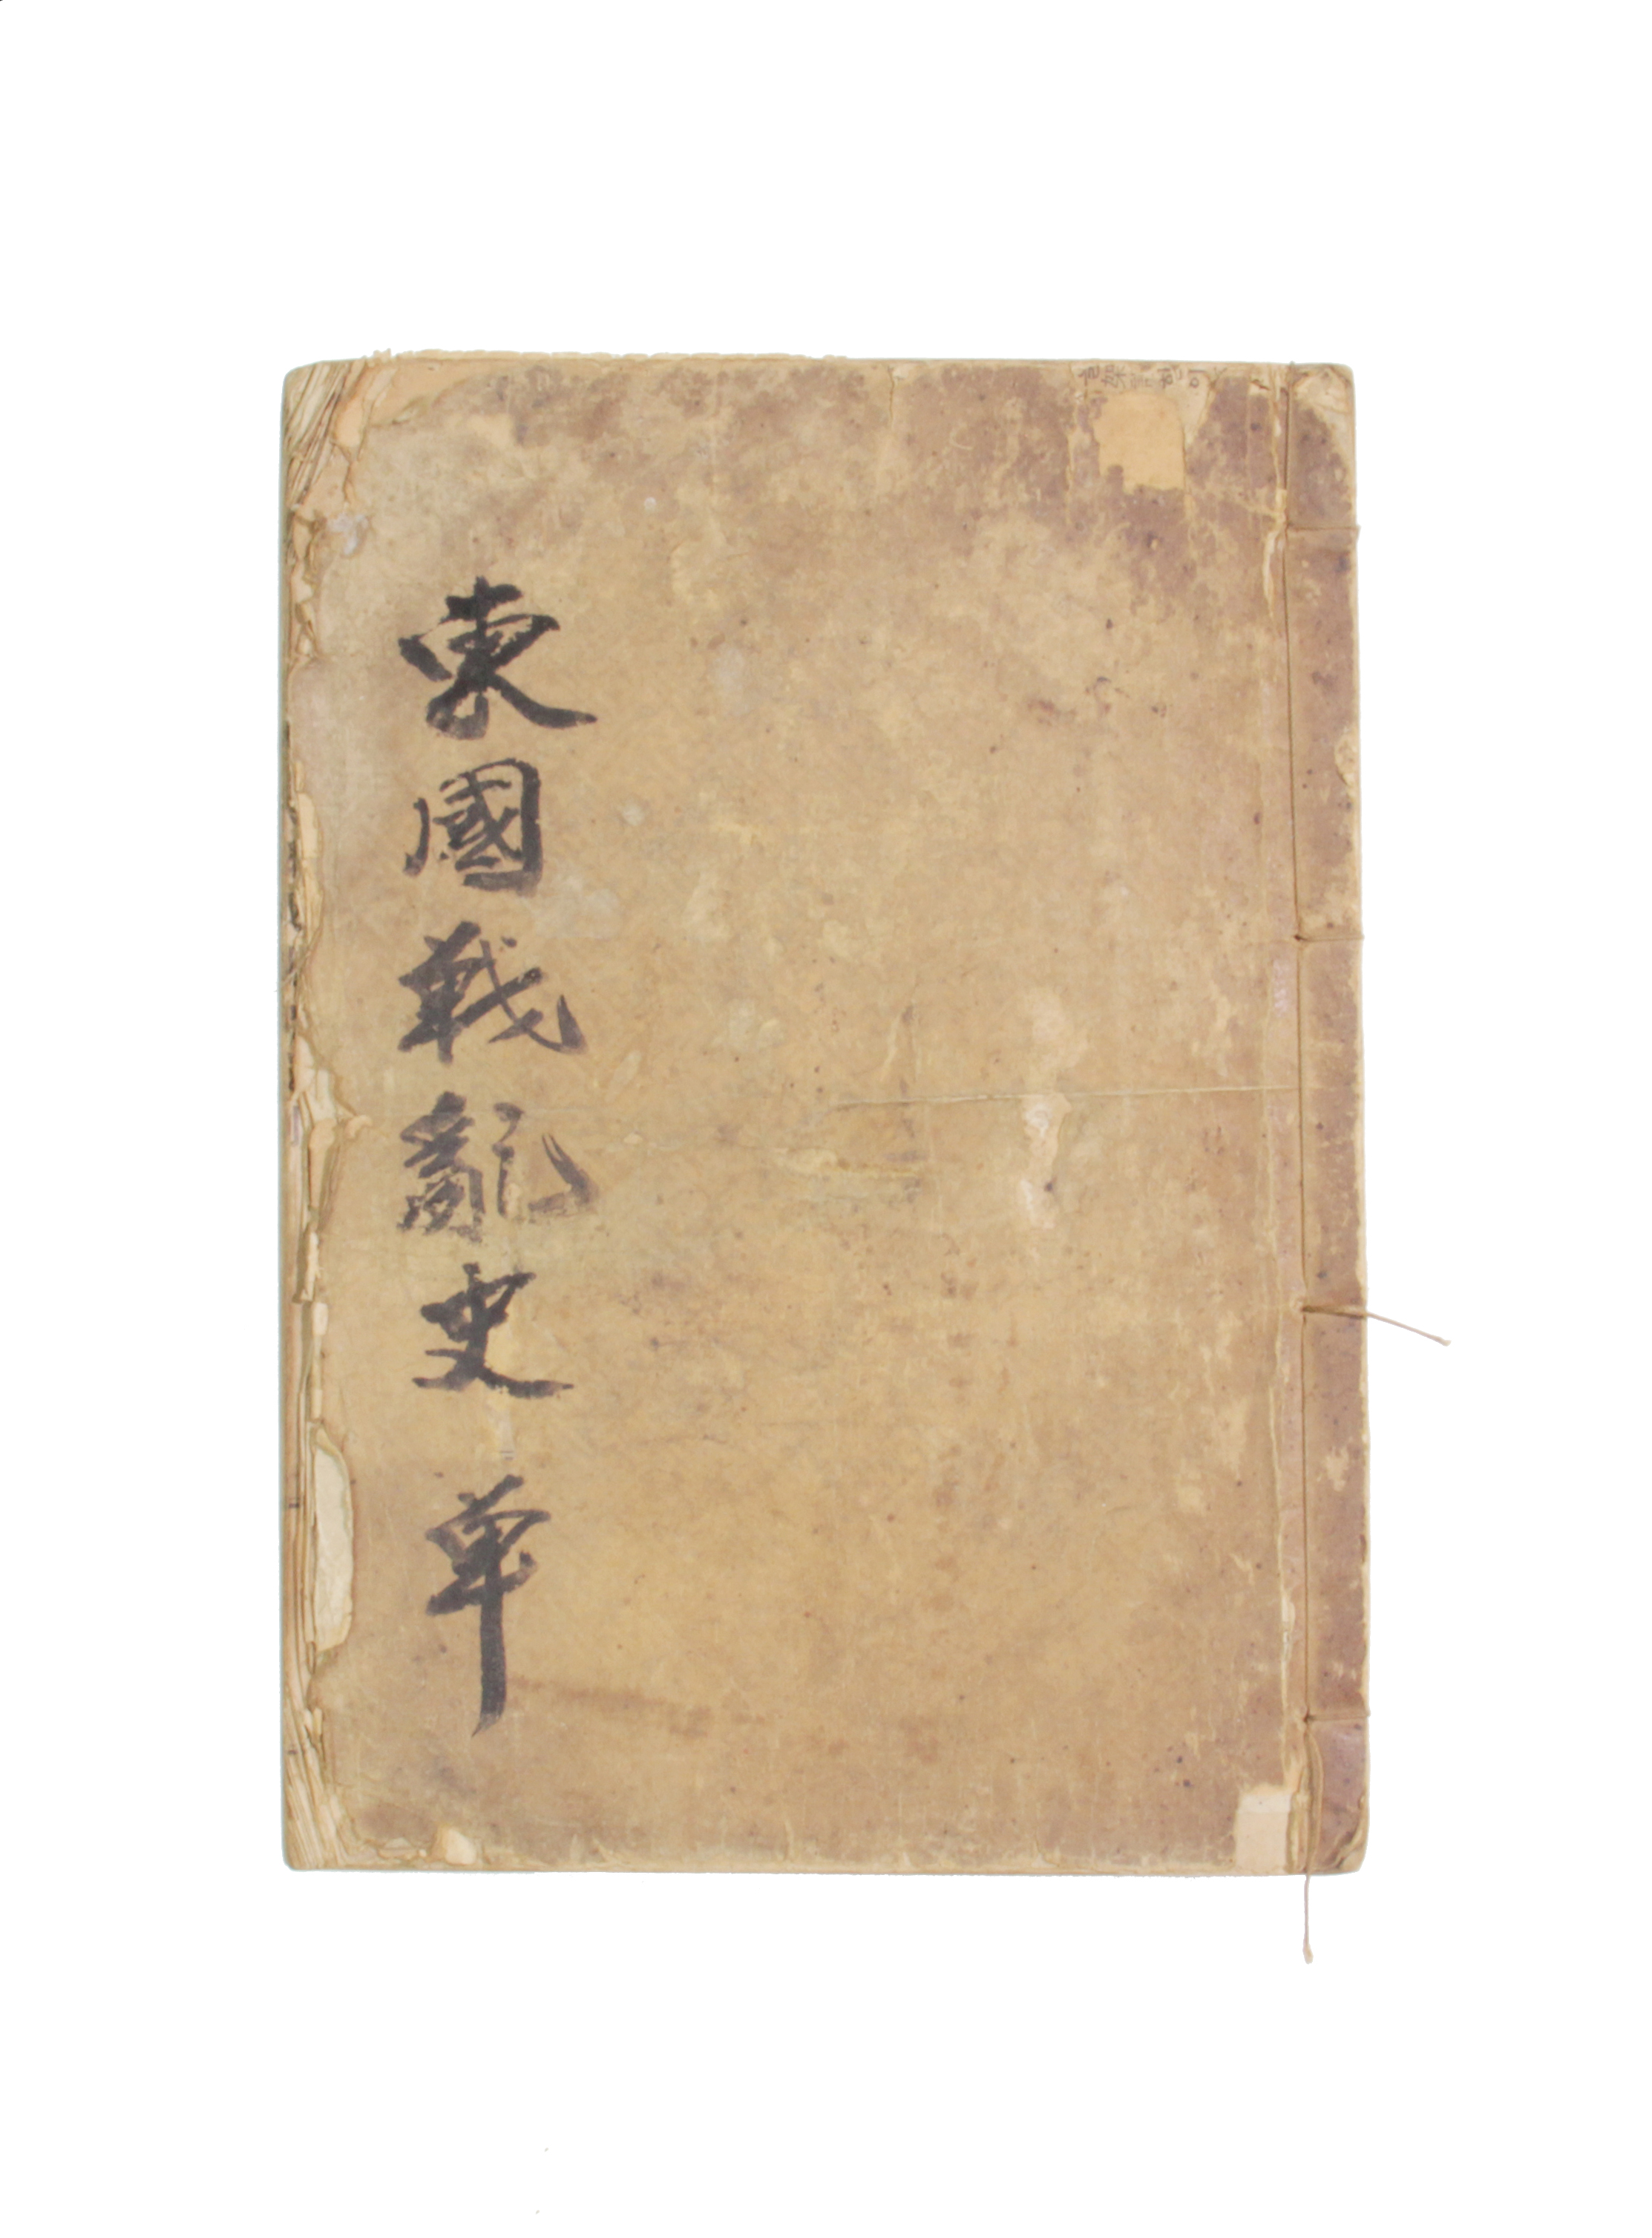 東國戰亂史 单